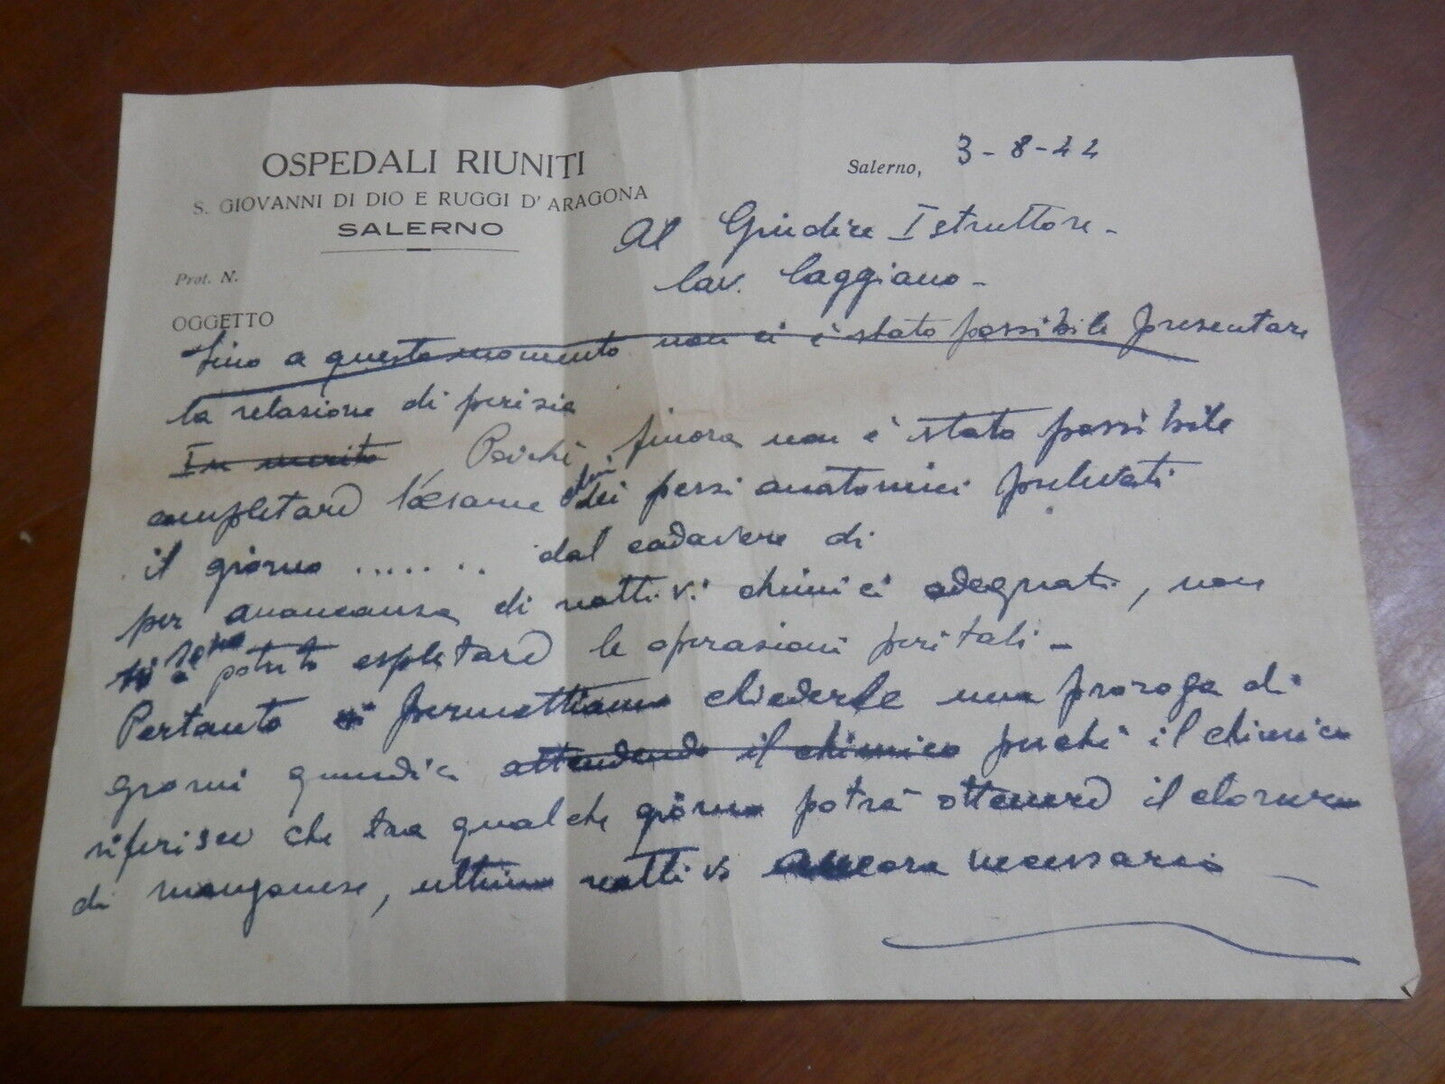 OSPEDALI RIUNITI
S. GIOVANNI DI DIO E RUGGI D'ARAGONA
SALERNO
Salerno, 3-8-44
Prot. N.
Al Giudice Istruttore -
Cav. Caggiano -
OGGETTO
Fino a questo momento non ci è stato possibile presentare
la relazione di perizia
In merito Poiché finora non è stato possibile
completare l'esame dei pezzi anatomici prelevati
il giorno ....... dal cadavere di
per mancanza di reattivi chimici adeguati, non
si sono potuto espletare le operazioni peritali -
Pertanto si permettiamo chiederle una proroga di
giorni quindici attendendo il chimico perché il chimico
riferisce che tra qualche giorno potrà ottenere il cloruro
di manganese, ultimo reattivo ancora necessario -